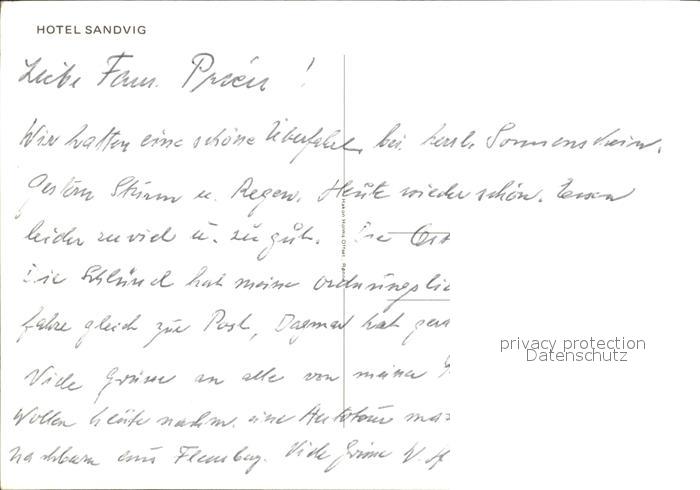 HOTEL SANDVIG
Liebe Fam.
Wir hatten eine schöne Überfahrt, bei herrl. Sonnenschein.
Gestern Sturm u. Regen. Heute wieder schön. Essen
leider zuviel u. zu gut. Die
Die hat meine ordnungslie
fahre gleich zur Post, Dagmar hat
Viele Grüsse an alle von meiner
Wollen heute nachm. eine Autotour
nachbarn aus Flensbg. Viele Grüsse
Hakon Holms Offset
privacy protection
Datenschutz